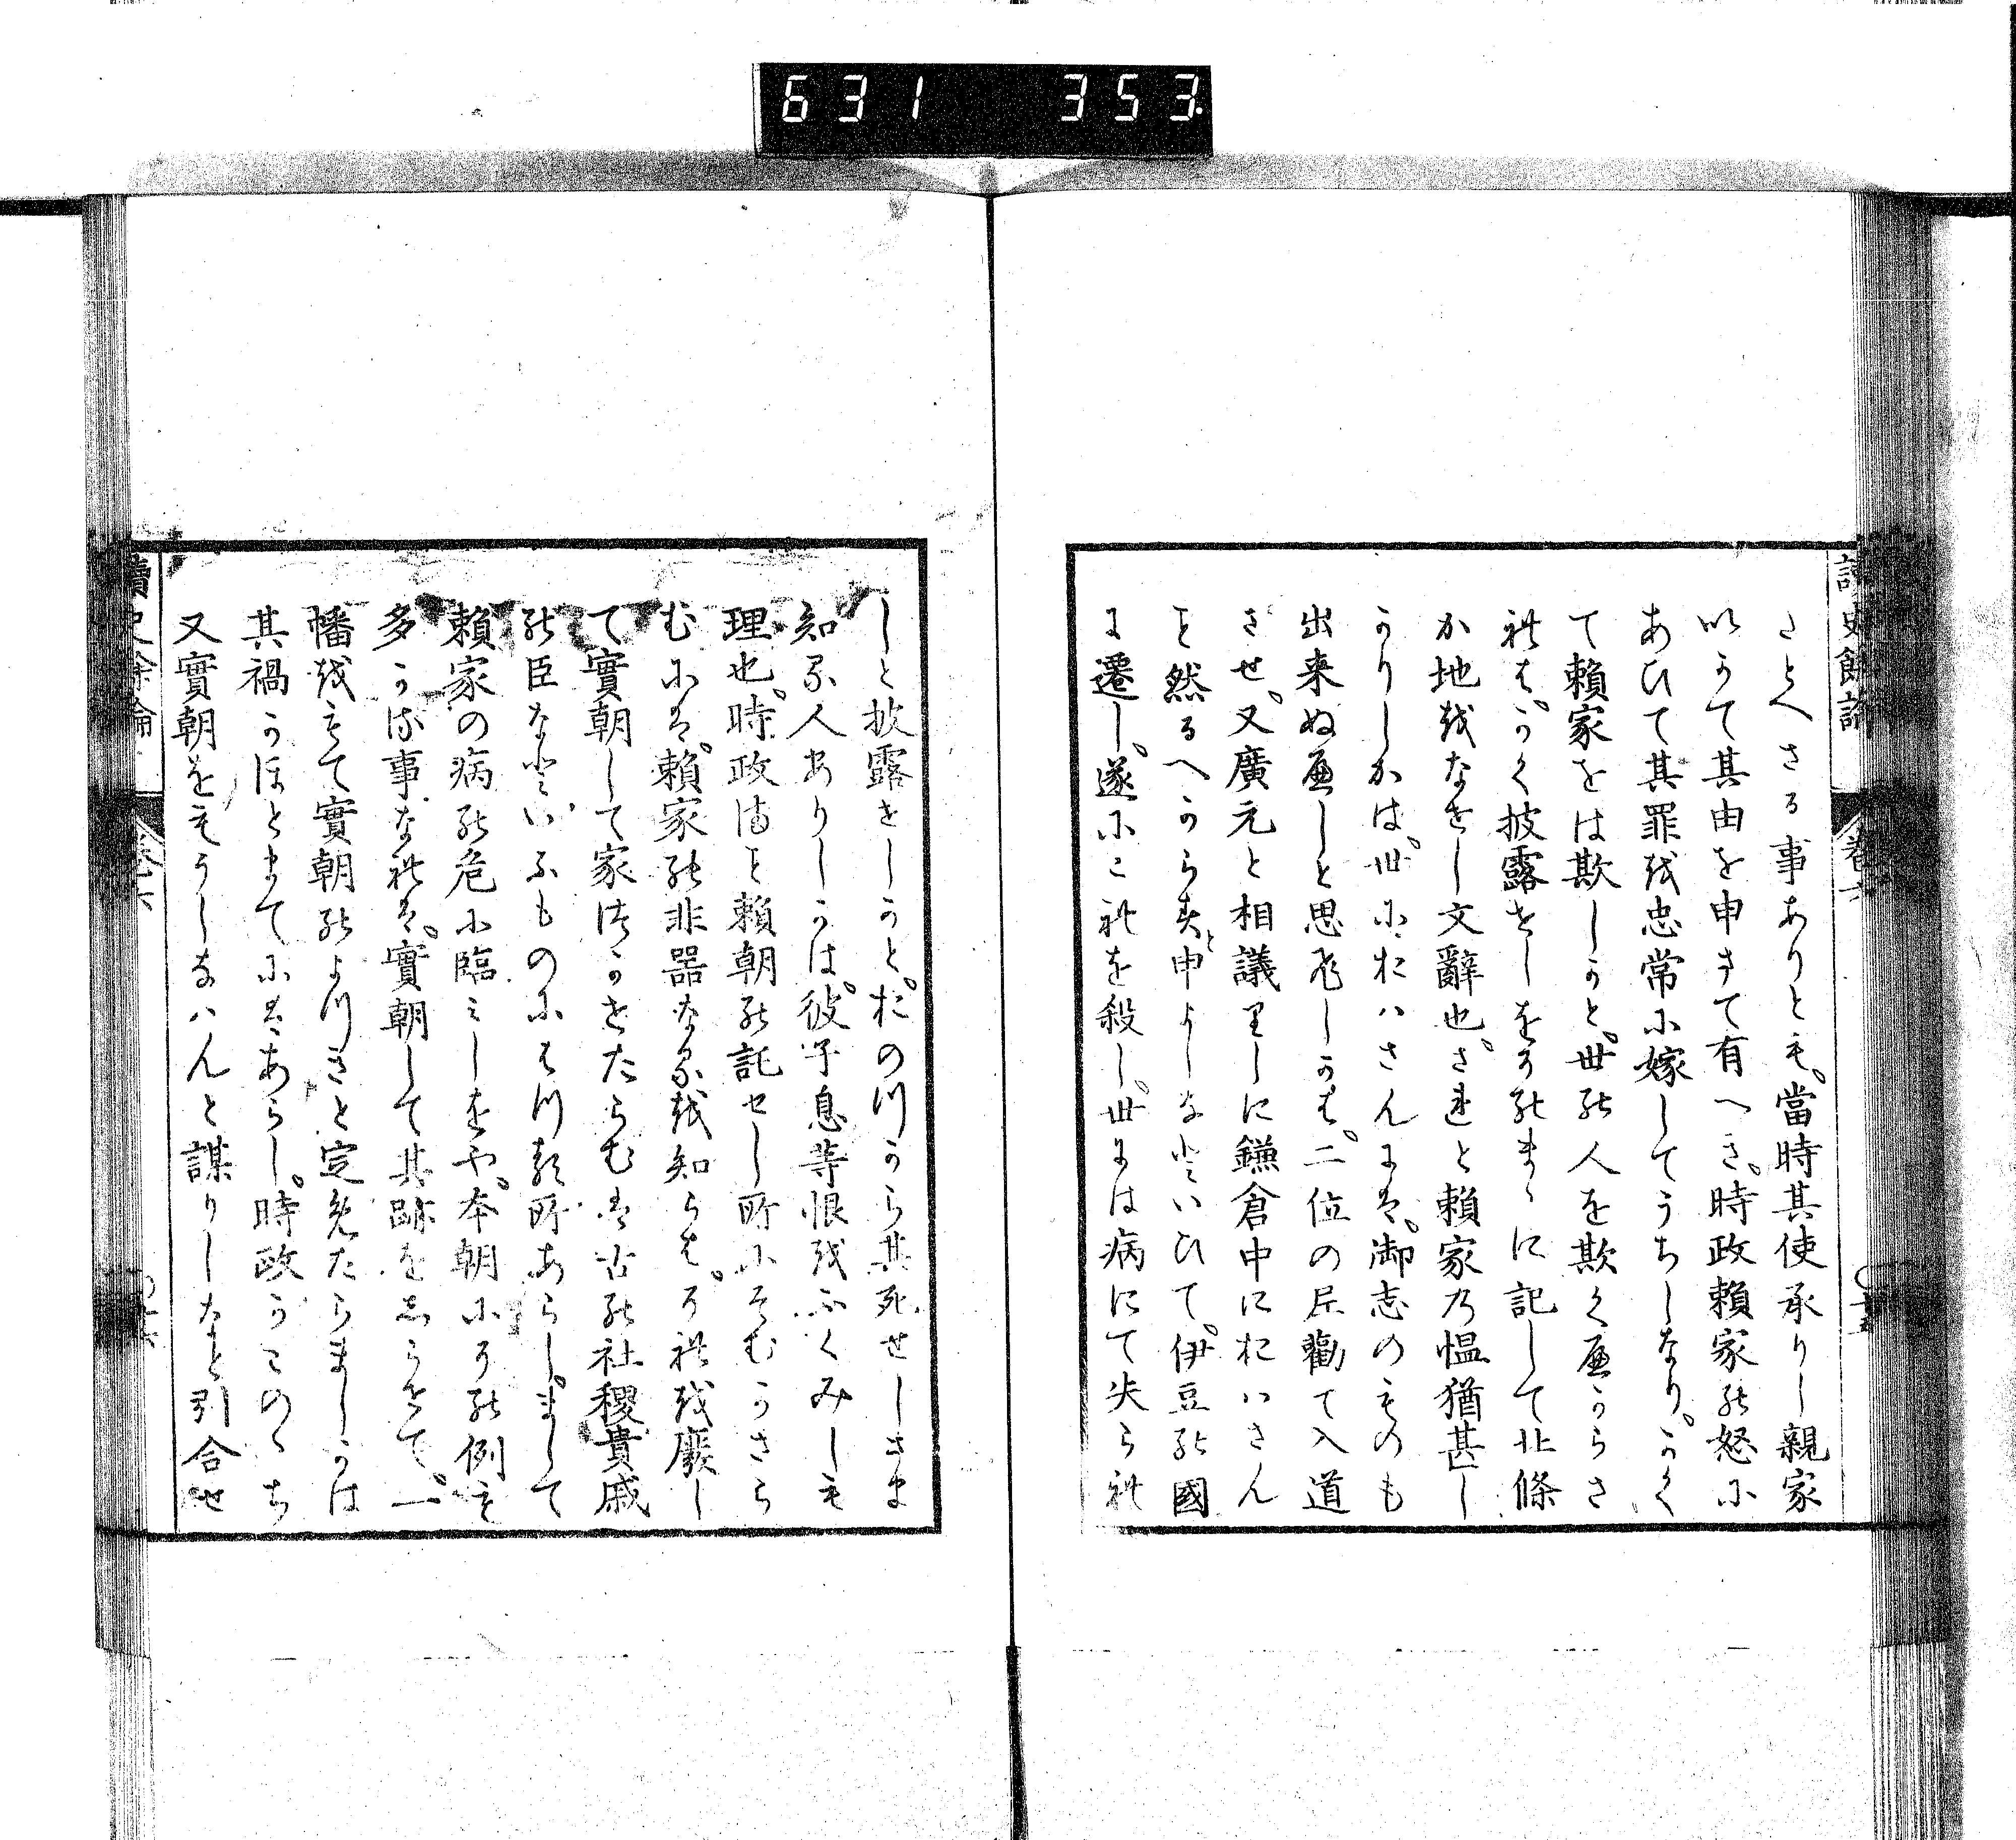 631 353
讀史餘論 卷六 十五
さとへさる事ありとも。當時其使承りし親家
いかて其由を申さて有へき。時政賴家の怒に
あひて其罪を忠常に嫁してうちしなり。かく
て賴家をは欺しかと。世の人を欺く𛀙からさ
れは。かく披露せしをそのまゝに記して北條
か地をなせし文辭也。されと賴家の慍猶甚し
かりしかは。世におハさんには。御志のもの も
出来ぬへしと思ひしかは。二位の尼勸て入道
させ。又廣元と相議りしに鎌倉中におハさん
も然るへからすと申よしなといひて。伊豆の國
に遷し。遂にこれを殺し。世には病にて失られ
しと披露せしかと。おのつから其死せしさま
知る人ありしかは。彼子息等恨をふくみしも
理也。時政はしめ賴朝の託せし所にそむかさら
むには。賴家の非器なるを知らは。それを廢し
て實朝して家はかせたらむは古の社稷貴戚
の臣なといふものにもはつる所あらし。まして
賴家の病の危に臨みしをや。本朝にその例も
多かる事なれは。實朝して其跡をしらせて。一
幡をもて實朝のよつきと定めたらましかは
其禍かほとまてにはあらし。時政かこのゝち
又實朝をもうしなハんと謀りしなと引合せ
讀史餘論 卷六